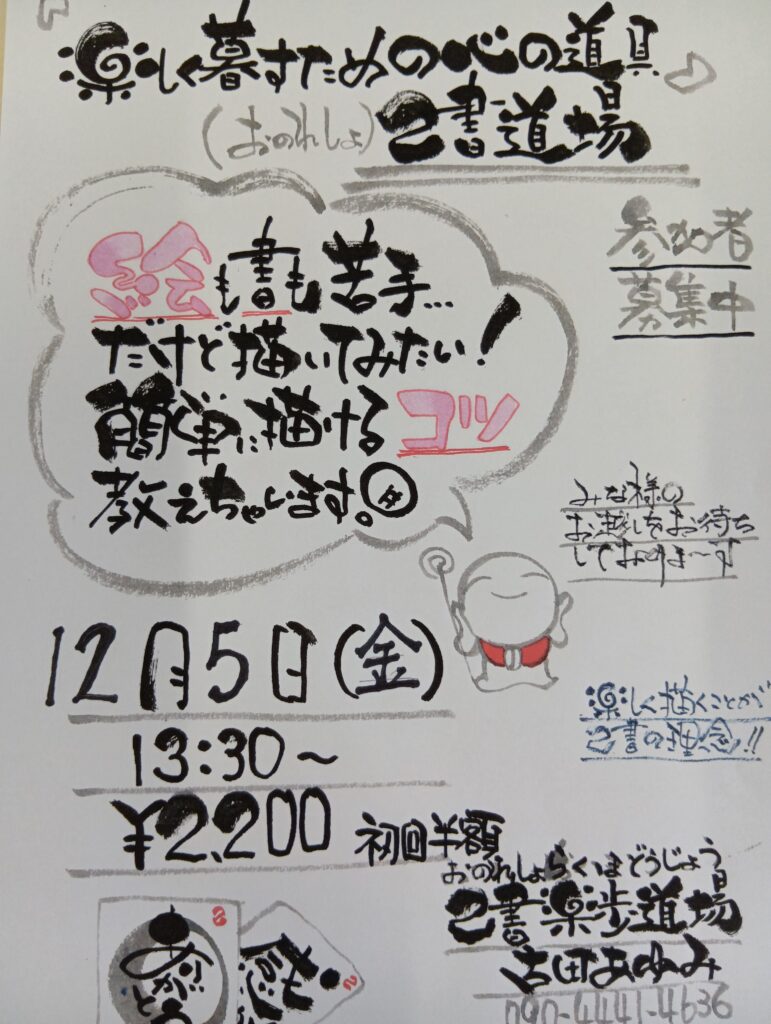 楽しく暮すための心の道具♪
(おのれしょ)己書道場
参加者
募集中
絵も書も苦手…
だけど描いてみたい!
簡単に描けるコツ
教えちゃいます。
みな様の
お越しをお待ち
しておりま～す
12月5日(金)
13:30～
¥2,200 初回半額
楽しく描くことが
己書の理念!!
おのれしょらくほどうじょう
己書楽歩道場
古田あゆみ
090-4441-4636
ありがとう